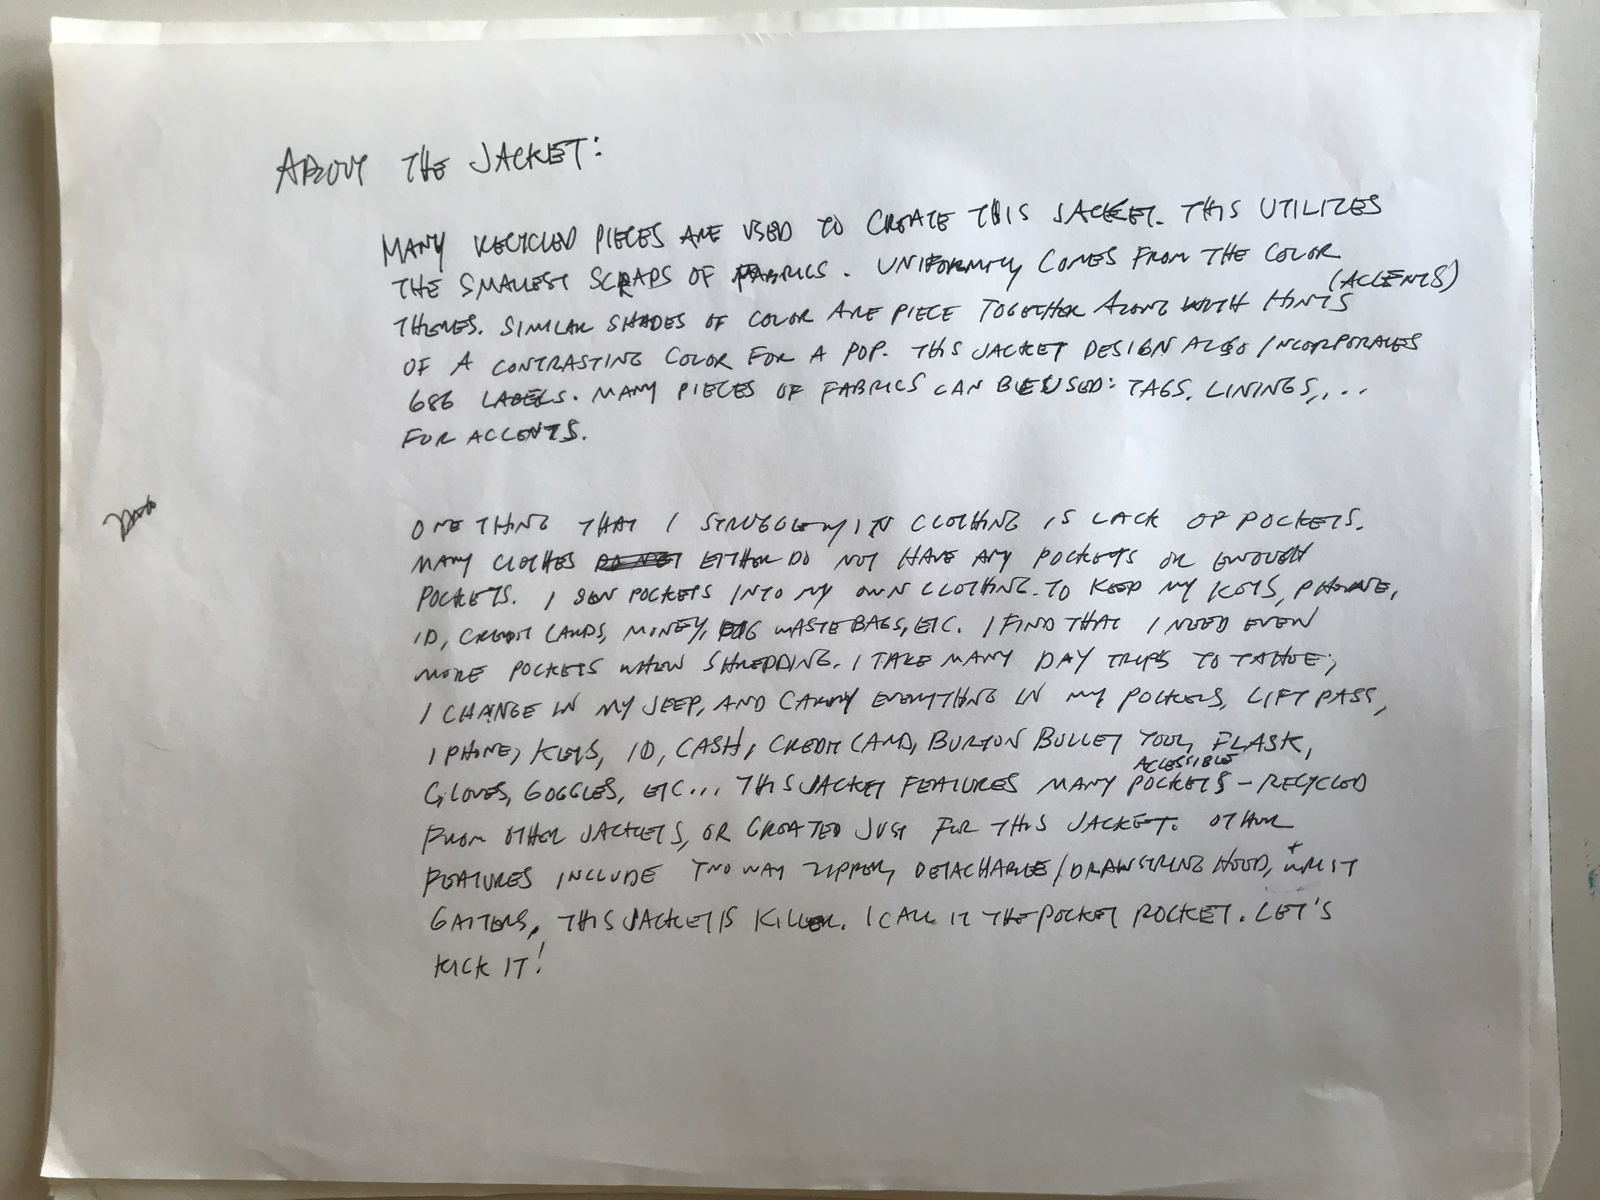 ABOUT THE JACKET:
MANY RECYCLED PIECES ARE USED TO CREATE THIS JACKET. THIS UTILIZES
THE SMALLEST SCRAPS OF FABRICS. UNIFORMITY COMES FROM THE COLOR
(ACCENTS)
THEMES. SIMILAR SHADES OF COLOR ARE PIECE TOGETHER ALONG WITH HINTS
OF A CONTRASTING COLOR FOR A POP. THIS JACKET DESIGN ALSO INCORPORATES
686 LABELS. MANY PIECES OF FABRICS CAN BE USED: TAGS, LININGS,...
FOR ACCENTS.
ONE THING THAT I STRUGGLE W/ IN CLOTHING IS LACK OF POCKETS.
MANY CLOTHES EITHER DO NOT HAVE ANY POCKETS OR ENOUGH
POCKETS. I SEW POCKETS INTO MY OWN CLOTHING. TO KEEP MY KEYS, PHONE,
ID, CREDIT CARDS, MONEY, WASTE BAGS, ETC. I FIND THAT I NEED EVEN
MORE POCKETS WHEN SHREDDING. I TAKE MANY DAY TRIPS TO TAHOE;
I CHANGE IN MY JEEP, AND CARRY EVERYTHING IN MY POCKETS, LIFT PASS,
IPHONE, KEYS, ID, CASH, CREDIT CARD, BURTON BULLET TOOL, FLASK,
ACCESSIBLE
GLOVES, GOGGLES, ETC... THIS JACKET FEATURES MANY POCKETS - RECYCLED
FROM OTHER JACKETS, OR CREATED JUST FOR THIS JACKET. OTHER
FEATURES INCLUDE TWO WAY ZIPPER, DETACHABLE/DRAWSTRING HOOD, + WRIST
GAITERS, THIS JACKET IS KILLER. I CALL IT THE POCKET ROCKET. LET'S
KICK IT!